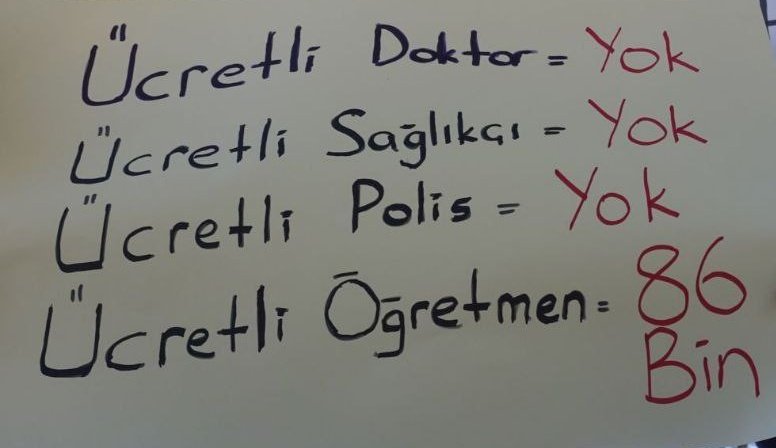 Ücretli Doktor = Yok
Ücretli Sağlıkçı = Yok
Ücretli Polis = Yok
Ücretli Öğretmen = 86
Bin